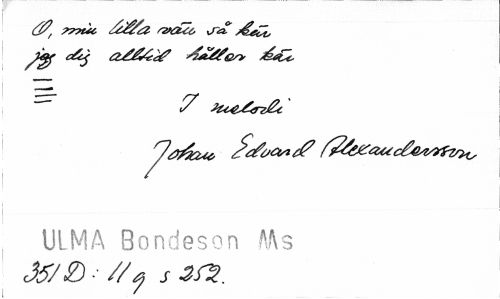 O, min lilla vän så kär
jag dig alltid håller kär
I melodi
Johan Edvard Alexandersson
ULMA Bondeson Ms
351 D: 11 q s 252.